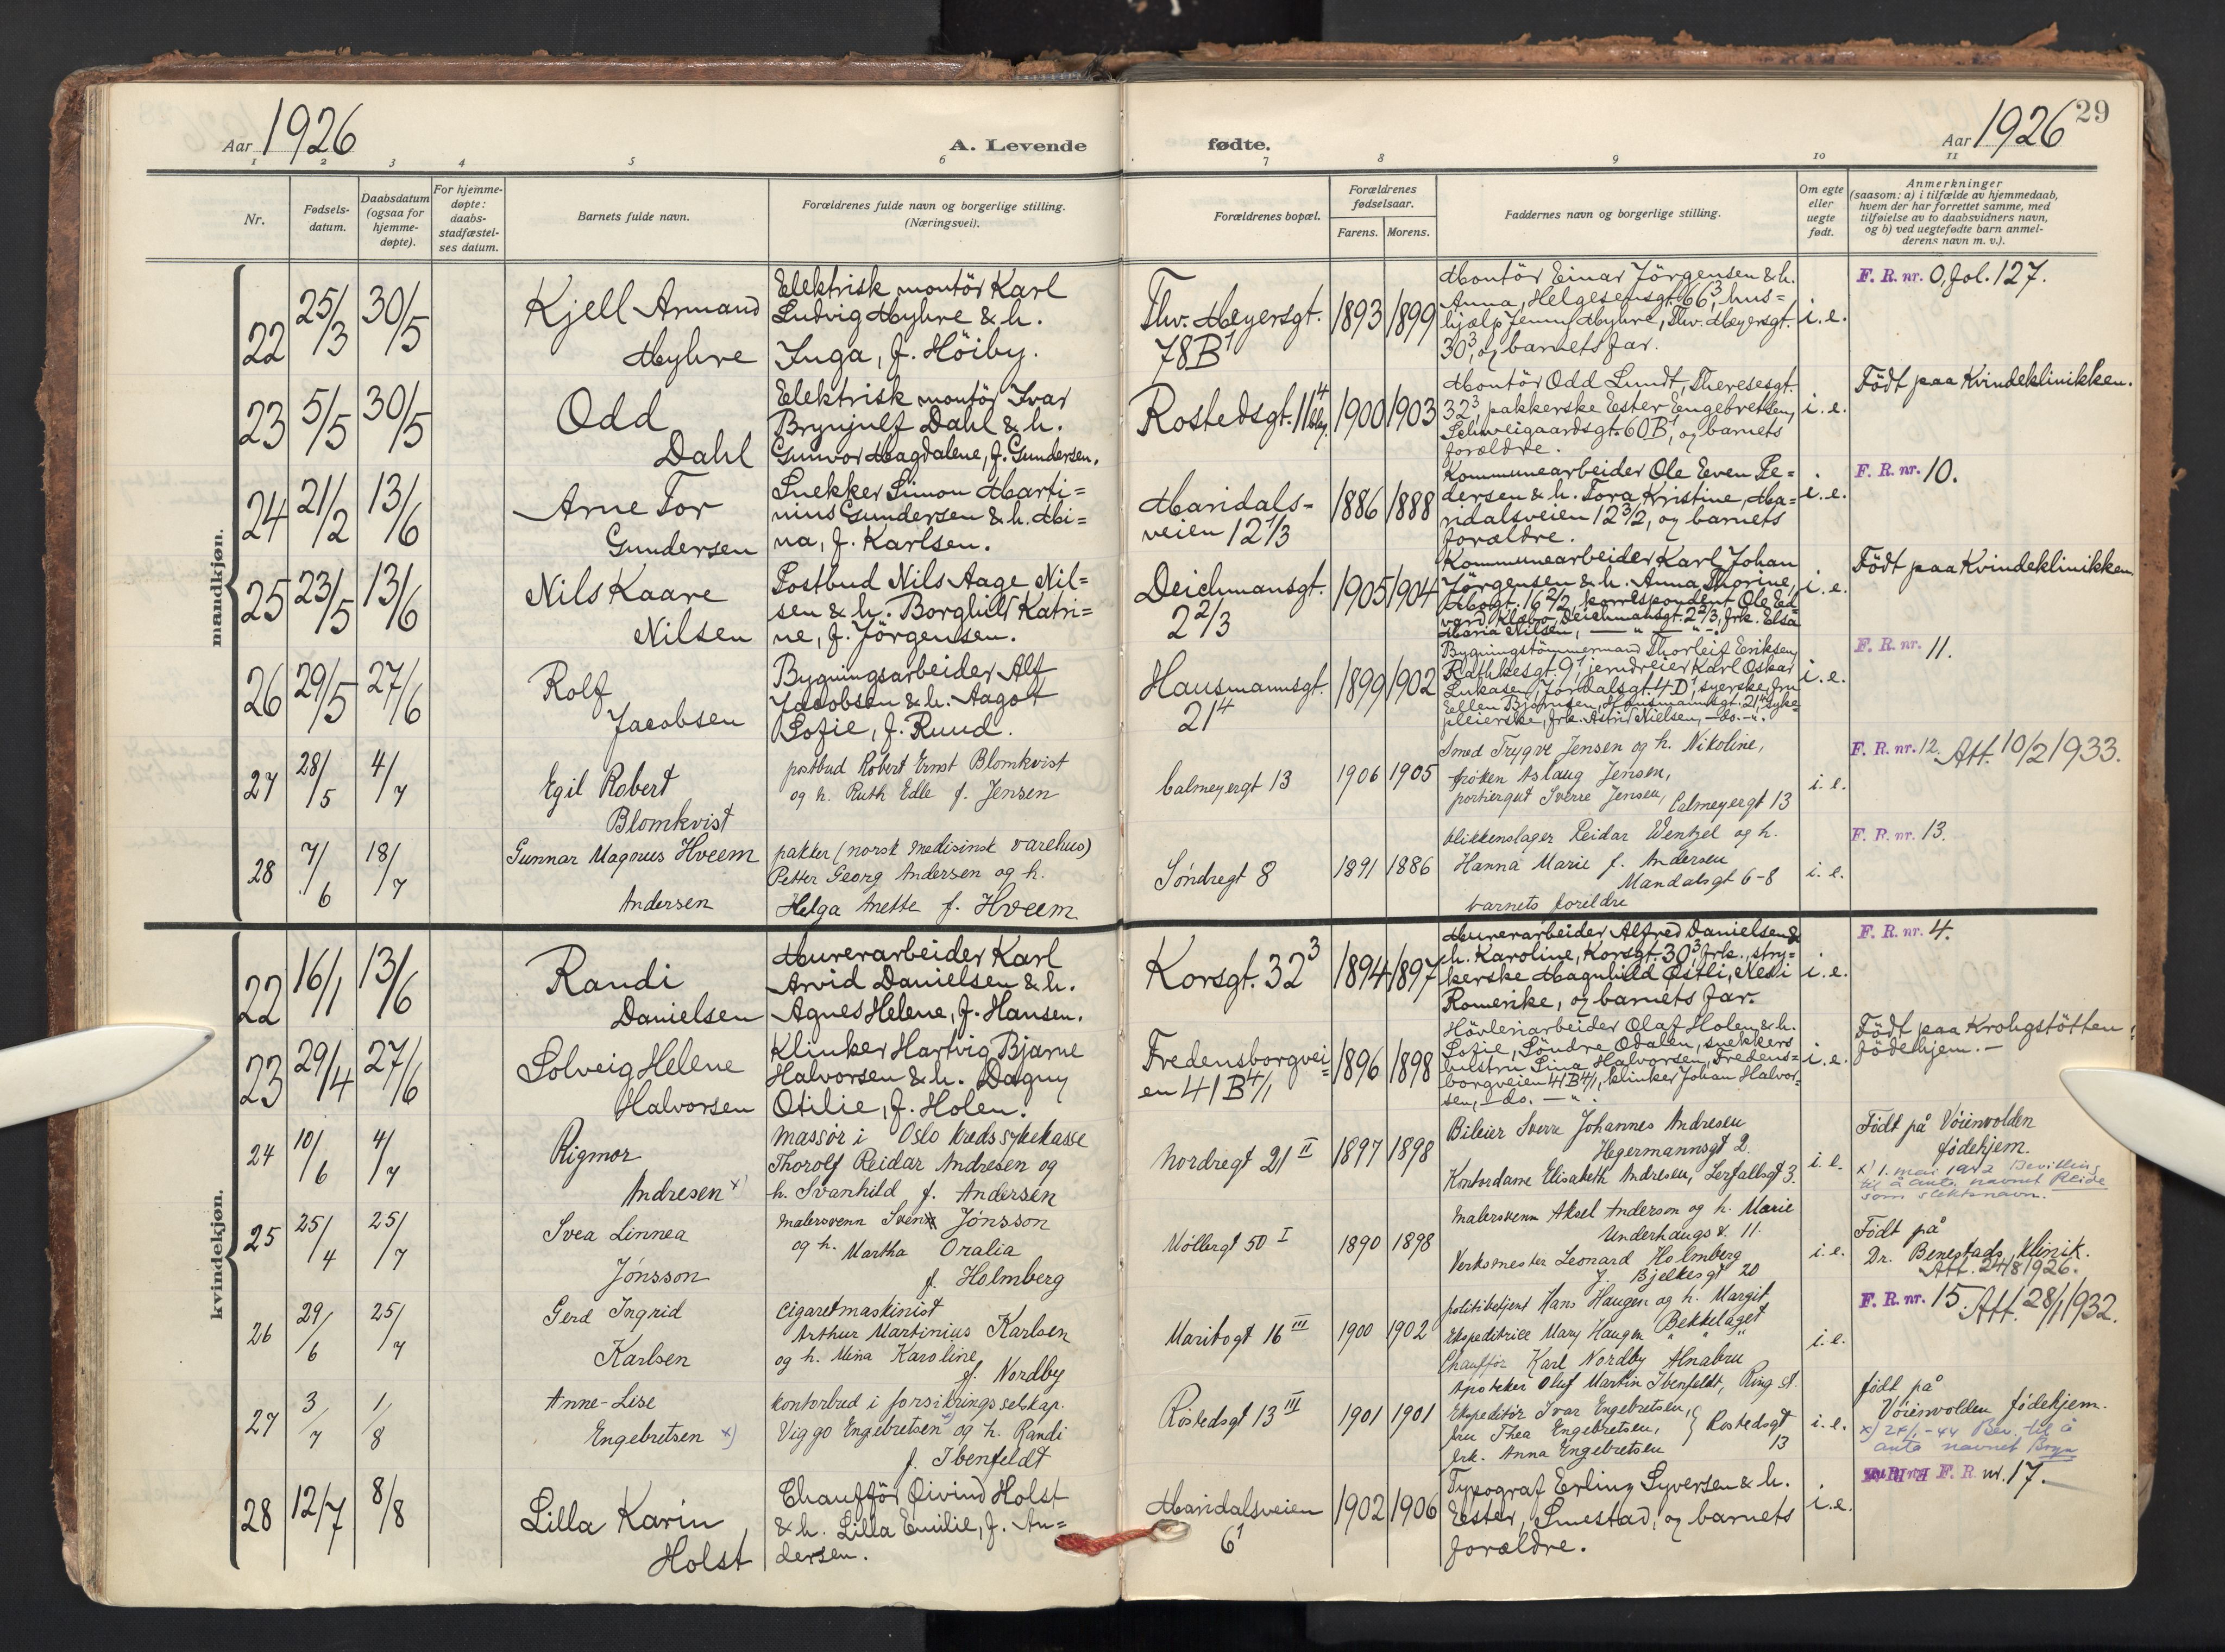 Aar 1926
A. Levende
fødte.
Aar 1926
29
1 2 3 4 5 6 7 8 9 10 11
Nr.
Fødsels-
datum.
Daabsdatum
(ogsaa for
hjemme-
døpte).
For hjemme-
døpte:
daabs-
stadfæstel-
ses datum.
Barnets fulde navn.
Forældrenes fulde navn og borgerlige stilling.
(Næringsvei).
Forældrenes bopæl.
Forældrenes
fødselsaar.
Farens. Morens.
Faddernes navn og borgerlige stilling.
Om egte
eller
uegte
født.
Anmerkninger
(saasom: a) i tilfælde av hjemmedaab,
hvem der har forrettet samme, med
tilføielse av to daabsvidners navn,
og b) ved uegtefødte barn anmel-
derens navn m. v.).
mandkjøn.
22
25/3
30/5
Kjell Armand
Myhre
Elektrisk montör Karl
Ludvig Myhre & h.
Inga, f. Höiby.
Thv. Meyersgt.
78B1
1893 1899
Montör Einar Jörgensen & h.
Anna, Helgesensgt. 66³, hus=
hjælp Jenny Myhre, Thv. Meyersgt.
30³, og barnets far.
i. e.
F. R. nr. 0, fol. 127.
23
5/5
30/5
Odd
Dahl
Elektrisk montör Ivar
Brynjulf Dahl & h.
Gunvor Magdalene, f. Gundersen.
Rostedsgt. 11
1900 1903
Montör Odd Lundt, Theresesgt.
32³, pakkerske Ester Engebretsen,
Schweigaardsgt. 60B1, og barnets
forældre.
i. e.
Födt paa Kvindeklinikken.
24
21/2
13/6
Arne Tor
Gundersen
Snekker Simon Marti=
nius Gundersen & h. Mi=
na, f. Karlsen.
Maridals=
veien 12 1/3
1886 1888
Kommunearbeider Ole Even Pe=
dersen & h. Tora Kristine, Ma=
ridalsveien 12 3/2, og barnets
forældre.
i. e.
F. R. nr. 10.
25
23/5
13/6
Nils Kaare
Nilsen
Postbud Nils Aage Nil=
sen & h. Borghild Katri=
ne, f. Jörgensen.
Deichmansgt.
2 2/3
1905 1904
Kommunearbeider Karl Johan
Jörgensen & h. Anna Thorine,
16 2/2, korrespondent Ole Ed=
vard Deichmansgt. 2 2/3, frk. Elsa
Maria Nilsen, — " — " —.
i. e.
Födt paa Kvindeklinikken
26
29/5
27/6
Rolf
Jacobsen
Bygningsarbeider Alf
Jacobsen & h. Aagot
Sofie, f. Ruud.
Hausmannsgt.
21⁴
1899 1902
Bygningstömmermand Thorleif Eriksen,
Rathkesgt. 9¹, jerndreier Karl Oskar
Lukasen, Jordalsgt. 4 D¹, syerske, fru
Ellen Björnsen, Hausmannsgt. 21⁴, syke=
pleierske, frk. Astrid Nielsen, —do.—".
i. e.
F. R. nr. 11.
27
28/5
4/7
Egil Robert
Blomkvist
postbud Robert Ernst Blomkvist
og h. Ruth Edle f. Jensen
Calmeyergt 13
1906 1905
Smed Trygve Jensen og h. Nikoline,
frøken Aslaug Jensen,
portiergut Sverre Jensen, Calmeyergt 13
i. e.
F. R. nr. 12. Att. 10/2 1933.
28
7/6
18/7
Gunnar Magnus Hveem
Andersen
pakker (norsk medisinsk varehus)
Petter Georg Andersen og h.
Helga Anette f. Hveem
Søndregt 8
1891 1886
blikkenslager Reidar Wentzel og h.
Hanna Marie f. Andersen
Mandalsgt 6-8
barnets foreldre
i. e.
F. R. nr. 13.
kvindekjøn.
22
16/1
13/6
Randi
Danielsen
Murerarbeider Karl
Arvid Danielsen & h.
Agnes Helene, f. Hansen.
Korsgt. 32³
1894 1897
Murerarbeider Alfred Danielsen &
h. Karoline, Korsgt. 30³, frk., stry=
kerske Magnhild Östli, Nedi
Romerike, og barnets far.
i. e.
F. R. nr. 4.
23
29/4
27/6
Solveig Helene
Halvorsen
Klinker Hartvig Bjarne
Halvorsen & h. Dagny
Otilie, f. Holen.
Fredensborgvei=
en 41 B 4/1
1896 1898
Hövleriarbeider Olaf Holen & h.
Sofie, Söndre Odalen, snekkers
hustru Lina Halvorsen, Fredens=
borgveien 41 B 4/1, klinker Johan Halvor=
sen, —do. — ".
i. e.
Födt paa Krohgstötten
födehjem. —
24
10/6
4/7
Rigmor
Andresen x)
massør i Oslo kreds sykekasse
Thorolf Reidar Andresen og
h. Svanhild f. Andersen
Nordregt 21 II
1897 1898
Bileier Sverre Johannes Andresen
Hegermannsgt 2.
Kontordame Elisabeth Andresen, Lerfallsgt 3.
i. e.
Født på Vøienvolden
fødehjem.
x) 1. mai 1942 Bevilling
til å anta navnet Reide
som slektsnavn.
25
25/4
25/7
Svea Linnea
Jónsson
Malersvenn Sven Jónsson
og h. Martha Oralia
f. Holmberg
Møllergt 50 I
1890 1898
Malersvenn Aksel Anderson og h. Marie
Underhaugs v. 11.
Verksmester Leonard Holmberg
J. Bjelkesgt 20
i. e.
Født på
Dr. Benestads klinik.
Att. 24/8 1926.
26
29/6
25/7
Gerd Ingrid
Karlsen
Cigaretmaskinist
Arthur Martinius Karlsen
og h. Mina Karoline
f. Nordby
Maribogt 16 III
1900 1902
politibetjent Hans Haugen og h. Margit
Ekspeditrice Mary Haugen Bekkelaget
Chauffør Karl Nordby Alnabru
i. e.
F. R. nr. 15. Att. 28/1 1932.
27
3/7
1/8
Anne-Lise
Engebretsen x)
Kontorbud i forsikringsselskap.
Viggo Engebretsen x) og h. Randi
f. Ibenfeldt
Rostedsgt 13 III
1901 1901
Apoteker Oluf Martin Ibenfeldt, Ring st.
Ekspeditør Ivar Engebretsen,
fru Thea Engebretsen, } Rostedsgt
frk. Anna Engebretsen 13
i. e.
født på
Vøienvolden fødehjem.
x) 24/1-44 Bev. til å
anta navnet Bryn
28
12/7
8/8
Lilla Karin
Holst
Chaufför Öivind Holst
& h. Lilla Emilie, f. An=
dersen.
Maridalsveien
6¹
1902 1906
Typograf Erling Syversen & h.
Ester, Smestad, og barnets
forældre.
i. e.
F. R. nr. 17.